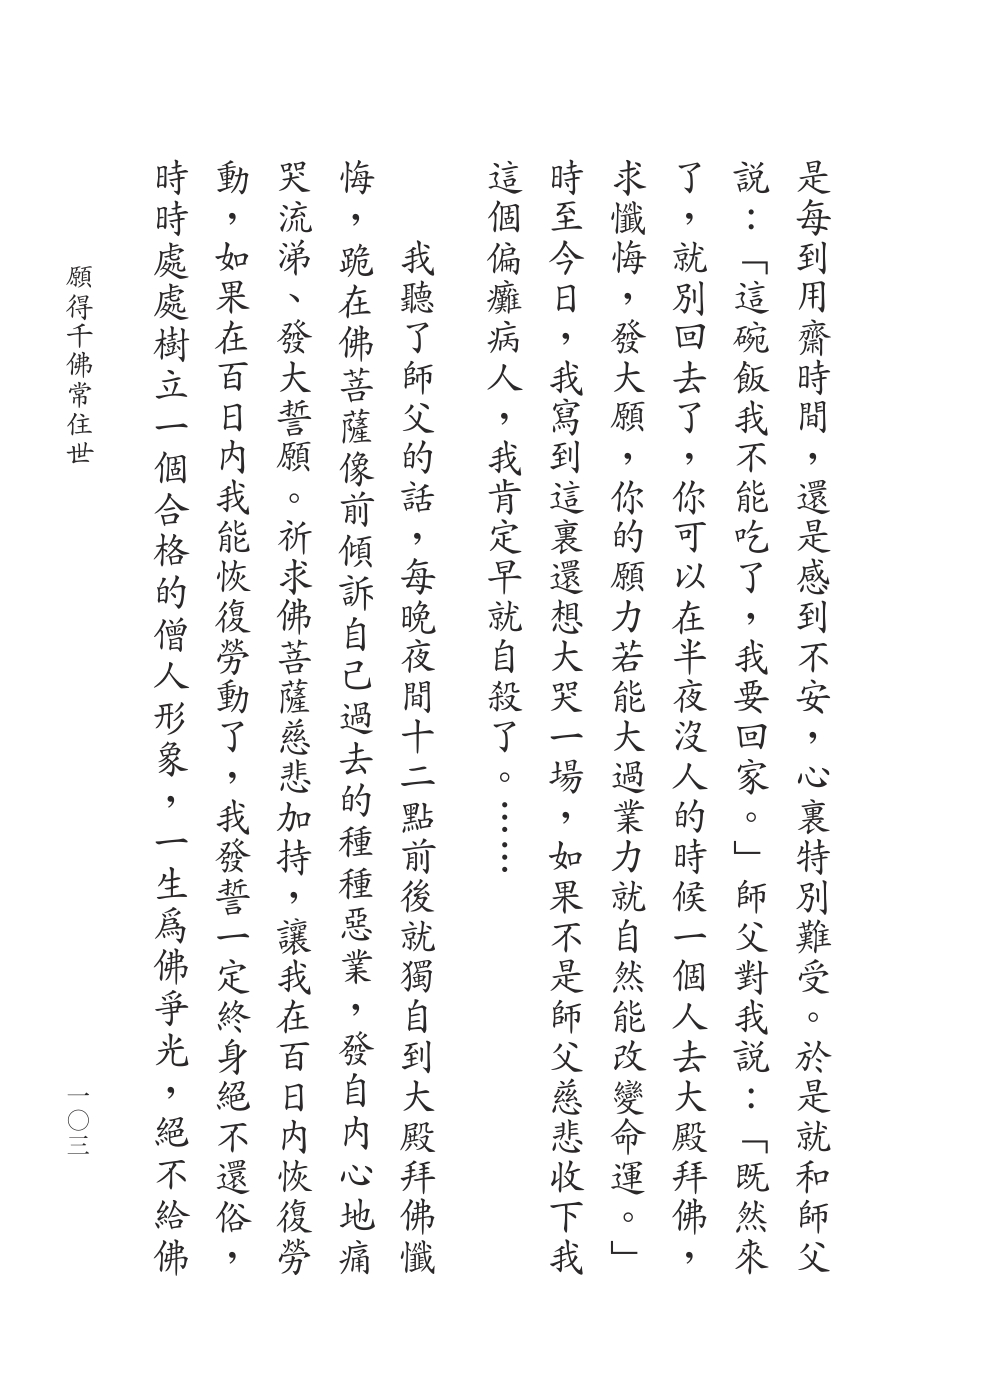 是每到用齋時間，還是感到不安，心裏特別難受。於是就和師父
説：「這碗飯我不能吃了，我要回家。」師父對我説：「既然來
了，就別回去了，你可以在半夜沒人的時候一個人去大殿拜佛，
求懺悔，發大願，你的願力若能大過業力就自然能改變命運。」
時至今日，我寫到這裏還想大哭一場，如果不是師父慈悲收下我
這個偏癱病人，我肯定早就自殺了。……
我聽了師父的話，每晚夜間十二點前後就獨自到大殿拜佛懺
悔，跪在佛菩薩像前傾訴自己過去的種種惡業，發自内心地痛
哭流涕、發大誓願。祈求佛菩薩慈悲加持，讓我在百日内恢復勞
動，如果在百日内我能恢復勞動了，我發誓一定終身絕不還俗，
時時處處樹立一個合格的僧人形象，一生爲佛爭光，絕不給佛
願得千佛常住世
一〇三